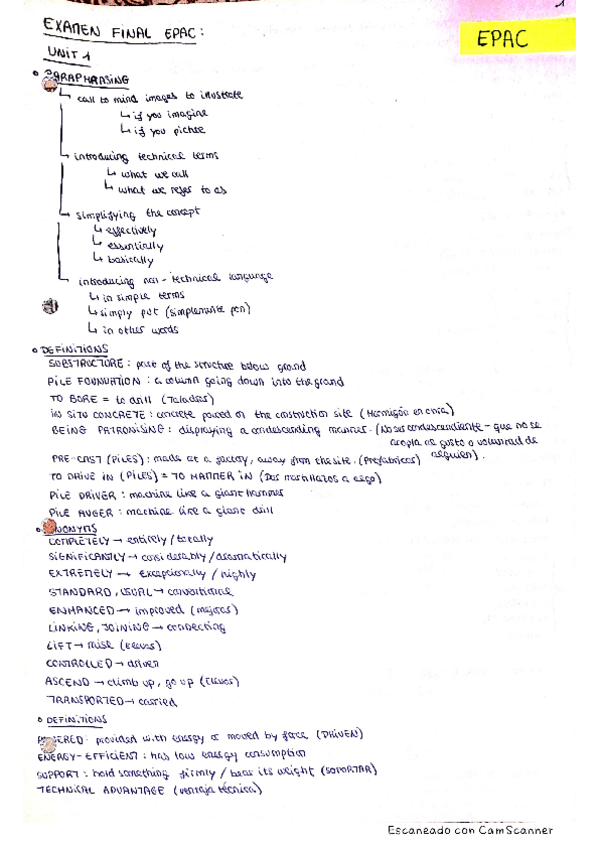 1
EXAMEN FINAL EPAC:
EPAC
UNIT 1
PARAPHRASING
↳ call to mind images to illustrate
↳ if you imagine
↳ if you picture
↳ introducing technical terms
↳ what we call
↳ what we refer to as
↳ simplifying the concept
↳ effectively
↳ essentially
↳ basically
↳ introducing non-technical language
↳ in simple terms
↳ simply put (simplemente pon)
↳ in other words
DEFINITIONS
SUBSTRUCTURE: part of the structure below ground
PILE FOUNDATION: a column going down into the ground
TO BORE = to drill (Taladrar)
IN SITU CONCRETE: concrete poured on the construction site (Hormigón en obra)
BEING PATRONISING: displaying a condescending manner. (No ser condescendiente - que no se
acopla de gusto o voluntad de
PRE-CAST (PILES): made at a factory, away from the site. (Prefabricas) alguien).
TO DRIVE IN (PILES) = TO HAMMER IN (Dar martillazos a algo)
PILE DRIVER: machine like a giant hammer
PILE AUGER: machine like a giant drill
SYNONYMS
COMPLETELY → entirely / totally
SIGNIFICANTLY → considerably / dramatically
EXTREMELY → exceptionally / highly
STANDARD, USUAL → conventional
ENHANCED → improved (mejorar)
LINKING, JOINING → connecting
LIFT → raise (elevar)
CONTROLLED → driven
ASCEND → climb up, go up (elevar)
TRANSPORTED → carried
DEFINITIONS
POWERED: provided with energy or moved by force (DRIVEN)
ENERGY-EFFICIENT: has low energy consumption
SUPPORT: hold something firmly / bear its weight (SOPORTAR)
TECHNICAL ADVANTAGE (ventaja técnica)
Escaneado con CamScanner